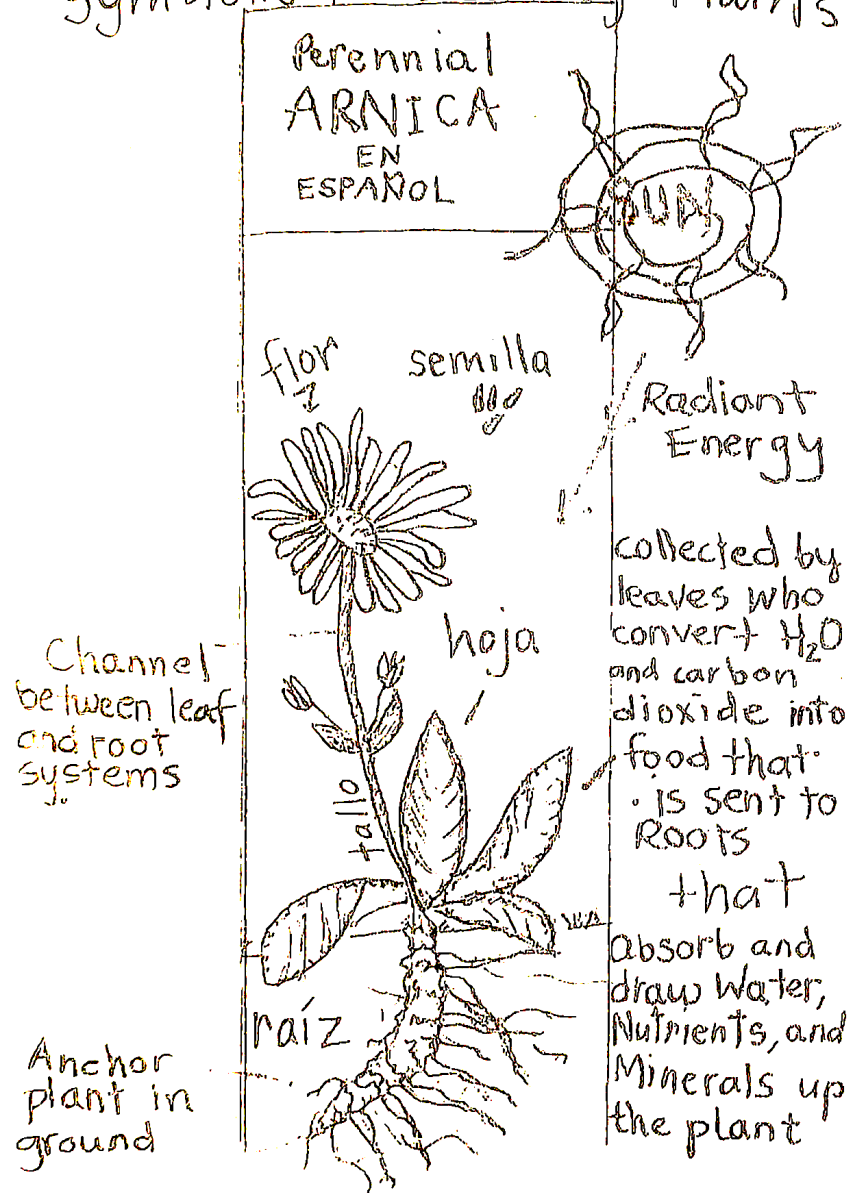 Plants
Perennial
ARNICA
EN
ESPAÑOL
flor
semilla
Radiant
Energy
collected by
leaves who
convert H₂O
and carbon
dioxide into
food that
is sent to
Roots
that
absorb and
draw Water,
Nutrients, and
Minerals up
the plant
hoja
Channel
between leaf
and root
systems
tallo
raíz
Anchor
plant in
ground